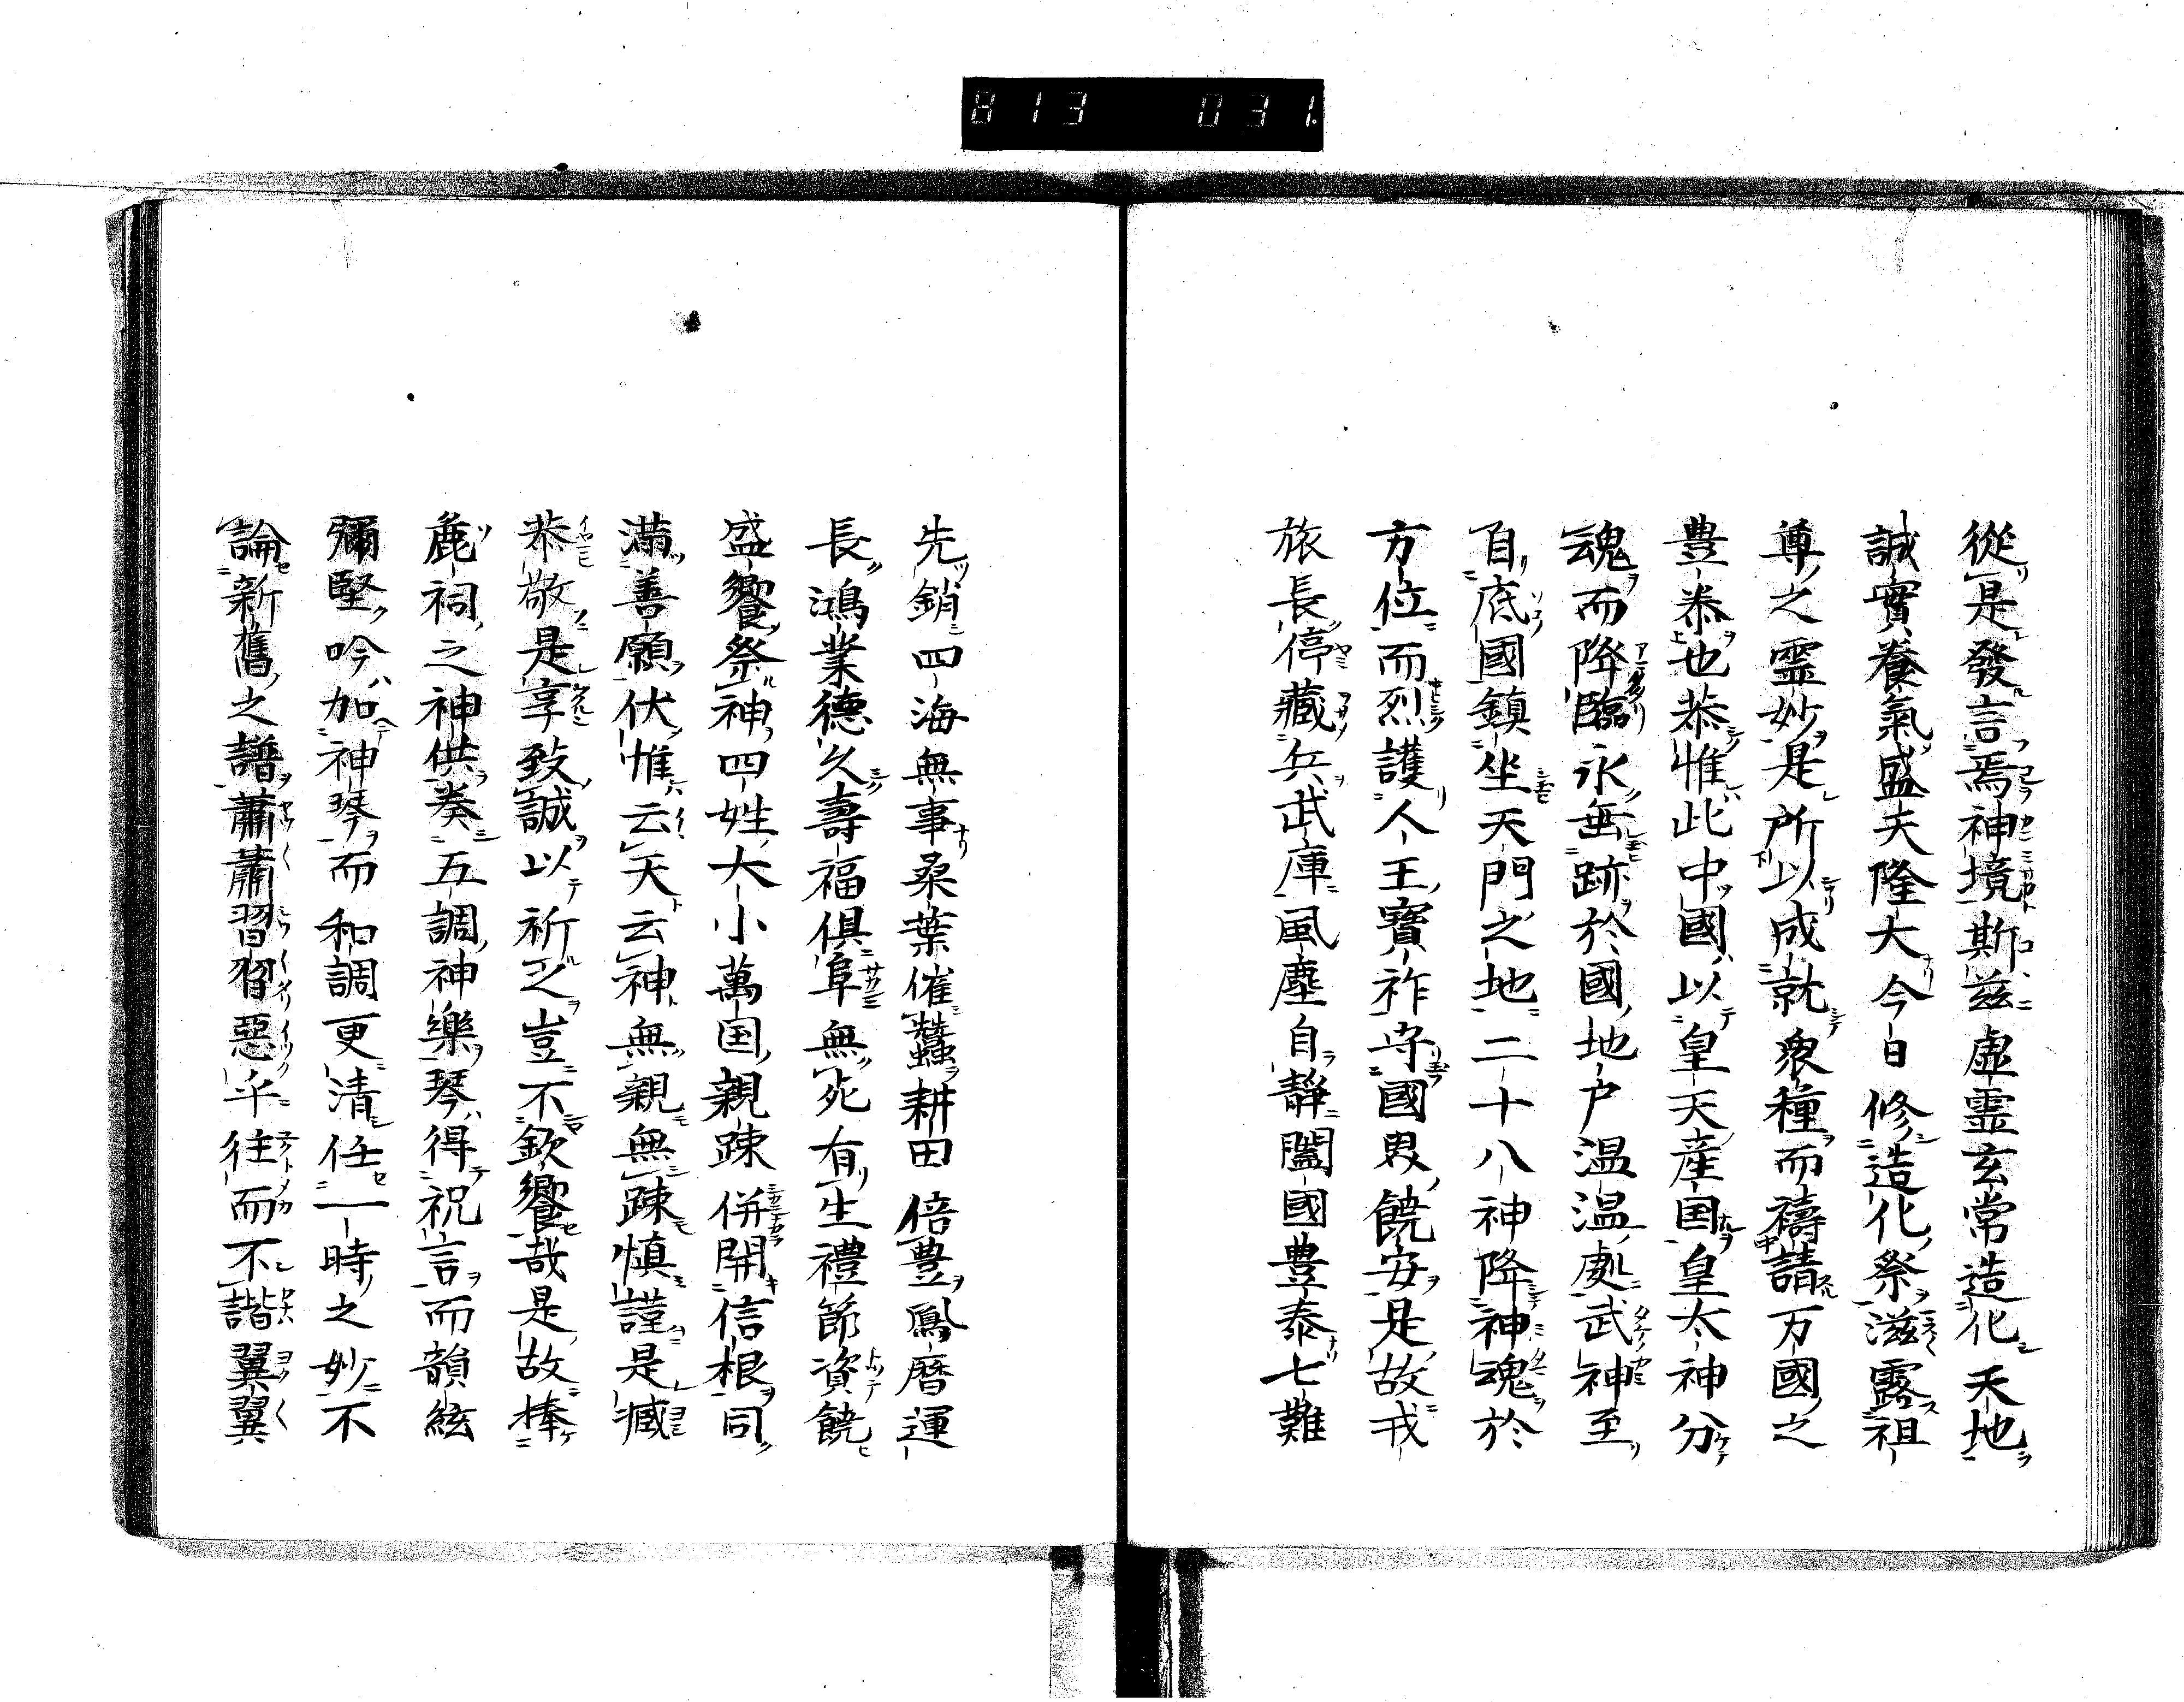 813 031.
從是發言焉神境斯茲虚霊玄常造化天地
誠實養氣盛夫隆大今日修造化祭滋露祖
尊之霊妙是所以成就衆種而禱請万國之
豊泰也恭惟此中國以皇天産国皇太神分
魂而降臨永無跡於國地户温温處武神至
自底國鎮坐天門之地二十八神降神魂於
方位而烈護人王寳祚守國界饒安是故戎
旅長停藏兵武庫風塵自靜闔國豊泰七難
先銷四海無事桑葉催蠶耕田倍豊鳳暦運
長鴻業德久壽福俱阜無死有生禮節資饒
盛饗祭神四姓大小萬国親踈併開信根同
满善願伏惟云天云神無親無踈慎謹是臧
恭敬是享致誠以祈之豈不歆饗哉是故捧
麁祠之神供奏五調神樂琴得祝言而韻絃
彌堅吟加神琴而和調更清任一時之妙不
論新舊之譜蕭蕭習習惡乎往而不諧翼翼